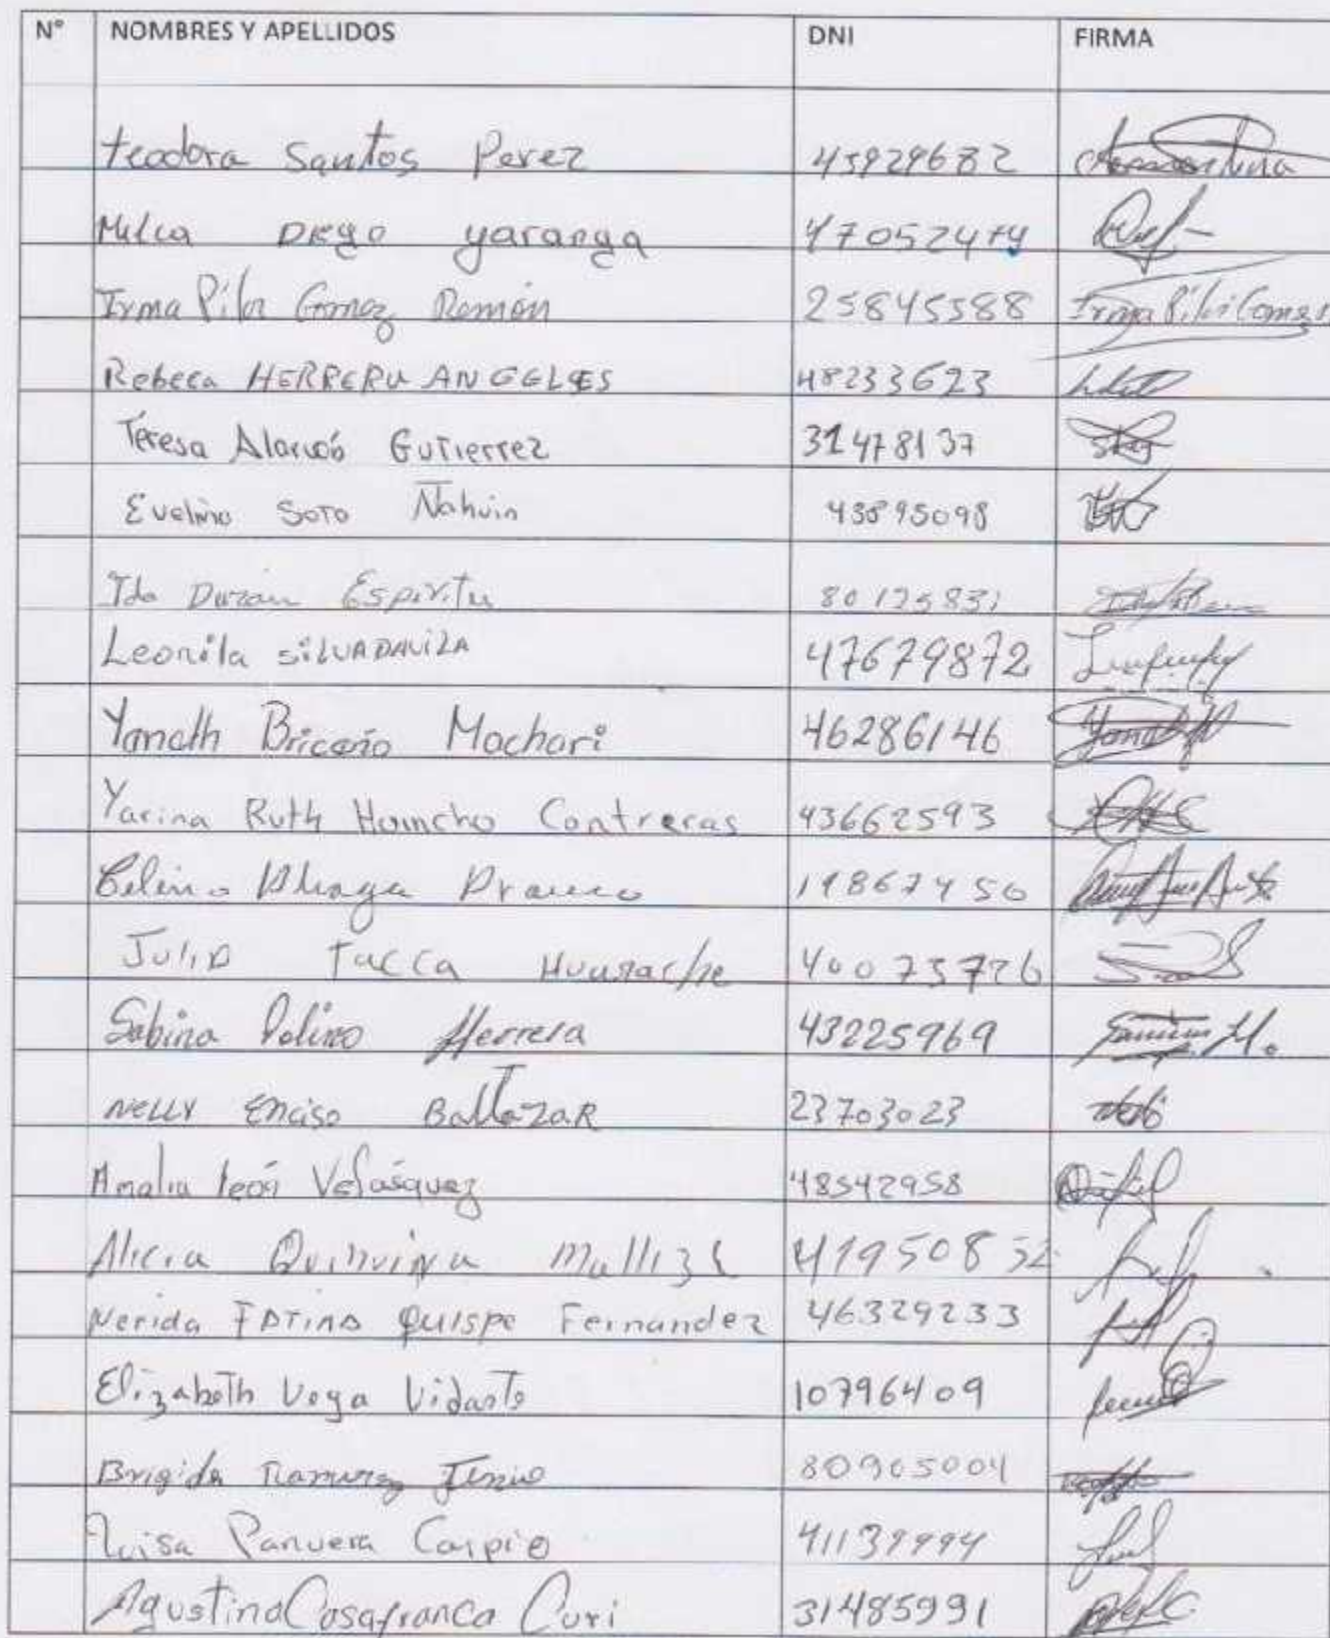 N° NOMBRES Y APELLIDOS DNI FIRMA
teodora Santos Perez 45929682
Milca Diego yaranga 47052474
Irma Pilar Gomez Ramón 25845588 Irma Pilar Gomez
Rebeca HERRERU ANGELES 48233623
Teresa Alarcón Gutierrez 31478137
Evelina Soto Ñahuin 43895098
Ida Duran Espiritu 80125831
Leonila SILVA DAVILA 47679872
Yaneth Briceño Machari 46286146
Yarina Ruth Huincho Contreras 43662593
Aliaga 19867450
Julia Tacca Huarache 40073726
Sabina Polino Herrera 43225969
NELLY Enciso BaltazaR 23703023
Amalia león Velásquez 48542958
Alicia Quihuipa 41950852
Nerida FATINA Quispe Fernandez 46329233
Elizabeth Vega Vidarte 10796409
Brigida Ramirez 80905004
Luisa Panuera Carpio 41139994
Agustina Casafranca Curi 31485991